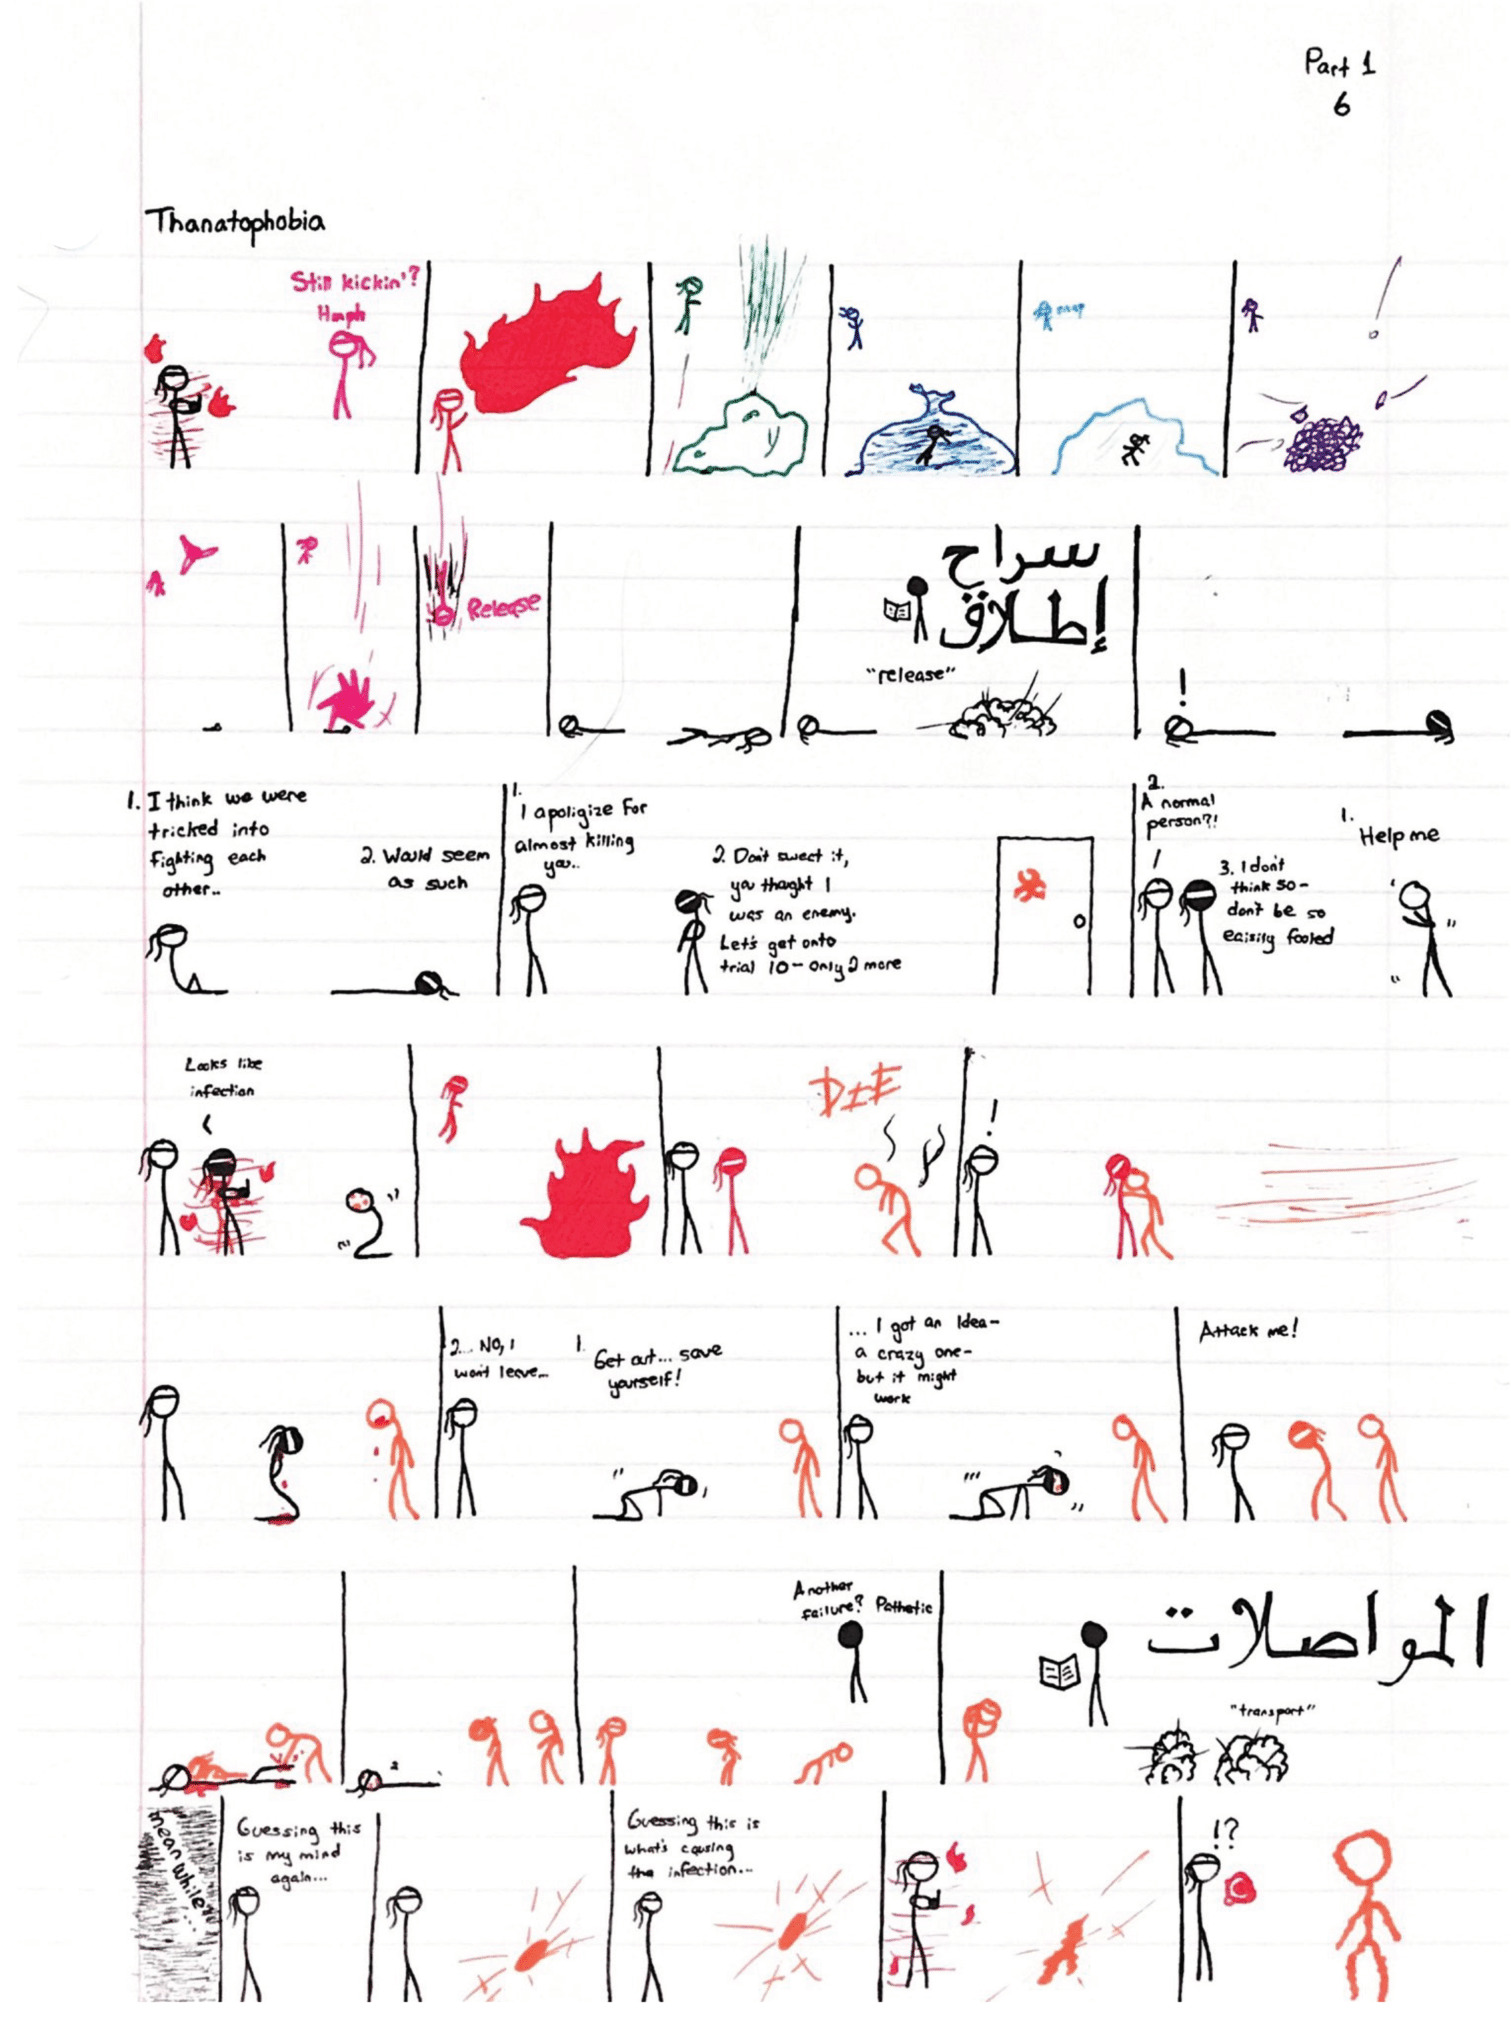 Part 1
6
Thanatophobia
Still kickin'?
Hmph
Release
سراح
إطلاق
"release"
!
1. I think we were
tricked into
fighting each
other..
2. Would seem
as such
1.
I apoligize for
almost killing
you..
2. Don't sweat it,
you thought I
was an enemy.
Let's get onto
trial 10 - only 2 more
2.
A normal
person?!
1.
Help me
3. I don't
think so -
don't be so
eaisily fooled
Looks like
infection
DIE
!
2... No, I
won't leave...
1.
Get out... save
yourself!
... I got an Idea -
a crazy one -
but it might
work
Attack me!
Another
failure? Pathetic
المواصلات
"transport"
mean while...
Guessing this
is my mind
again...
Guessing this is
what's causing
the infection...
!?